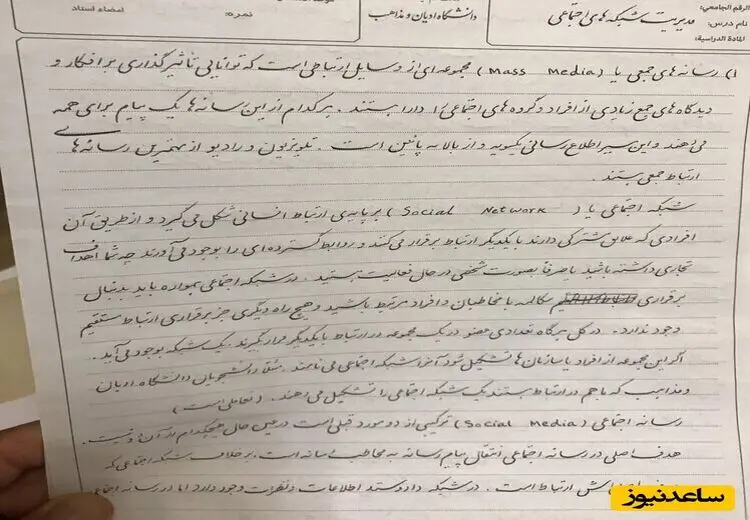 الرقم الجامعي:
نام درس: مدیریت شبکه های اجتماعی
المادة الدراسیة:
دانشگاه ادیان و مذاهب
نمره:
امضاء استاد
۱) رسانه های جمعی یا (Mass Media) مجموعه ای از وسایل ارتباطی است که توانایی تاثیرگذاری بر افکار و
دیدگاه های جمع زیادی از افراد و گروه های اجتماعی را دارا هستند. هر کدام از این رسانه ها یک پیام برای همه
می دهند و این سیر اطلاع رسانی یکسویه و از بالا به پائین است. تلویزیون و رادیو از مهمترین رسانه های
ارتباط جمعی هستند.
شبکه اجتماعی یا (Social Network) بر پایه ی ارتباط انسانی شکل می گیرد و از طریق آن
افرادی که علایق مشترکی دارند با یکدیگر ارتباط برقرار می کنند و روابط گسترده ای را بوجود می آورند چه شما اهداف
تجاری داشته باشید یا صرفاً بصورت شخصی در حال فعالیت هستید. در شبکه اجتماعی همواره باید بدنبال
برقراری مکالمه با مخاطبان و افراد مرتبط باشید و هیچ راه دیگری جز برقراری ارتباط مستقیم
وجود ندارد. در کل هرگاه تعدادی عضو در یک مجموعه در ارتباط با یکدیگر قرار گیرند یک شبکه بوجود می آید.
اگر این مجموعه از افراد یا سازمان ها تشکیل شود آنرا شبکه اجتماعی می نامند. مثلا دانشجویان دانشگاه ادیان
و مذاهب که با هم در ارتباط هستند یک شبکه اجتماعی را تشکیل می دهند. (تعاملی است)
رسانه اجتماعی (Social Media) ترکیبی از دو مورد قبلی است در عین حال هیچکدام از آن دو نیست.
هدف اصلی در رسانه اجتماعی انتقال پیام رسانه به مخاطب است. برخلاف شبکه اجتماعی که
ارتباط است. در شبکه داد و ستد اطلاعات و نظرات وجود دارد اما در رسانه اجتماعی
ساعدنیوز